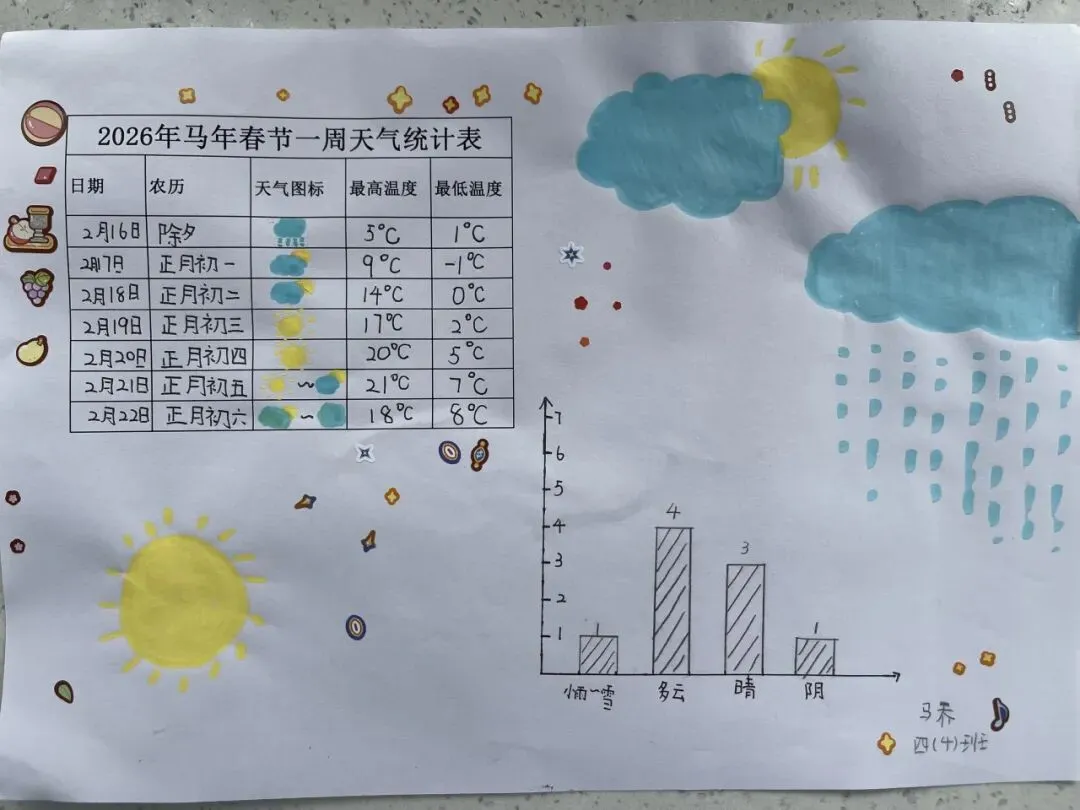 2026年马年春节一周天气统计表
日期 农历 天气图标 最高温度 最低温度
2月16日 除夕 5℃ 1℃
2月17日 正月初一 9℃ -1℃
2月18日 正月初二 14℃ 0℃
2月19日 正月初三 17℃ 2℃
2月20日 正月初四 20℃ 5℃
2月21日 正月初五 ~ 21℃ 7℃
2月22日 正月初六 ~ 18℃ 8℃
7
6
5
4
3
2
1
1 4 3 1
小雨~雪 多云 晴 阴
四(4)班